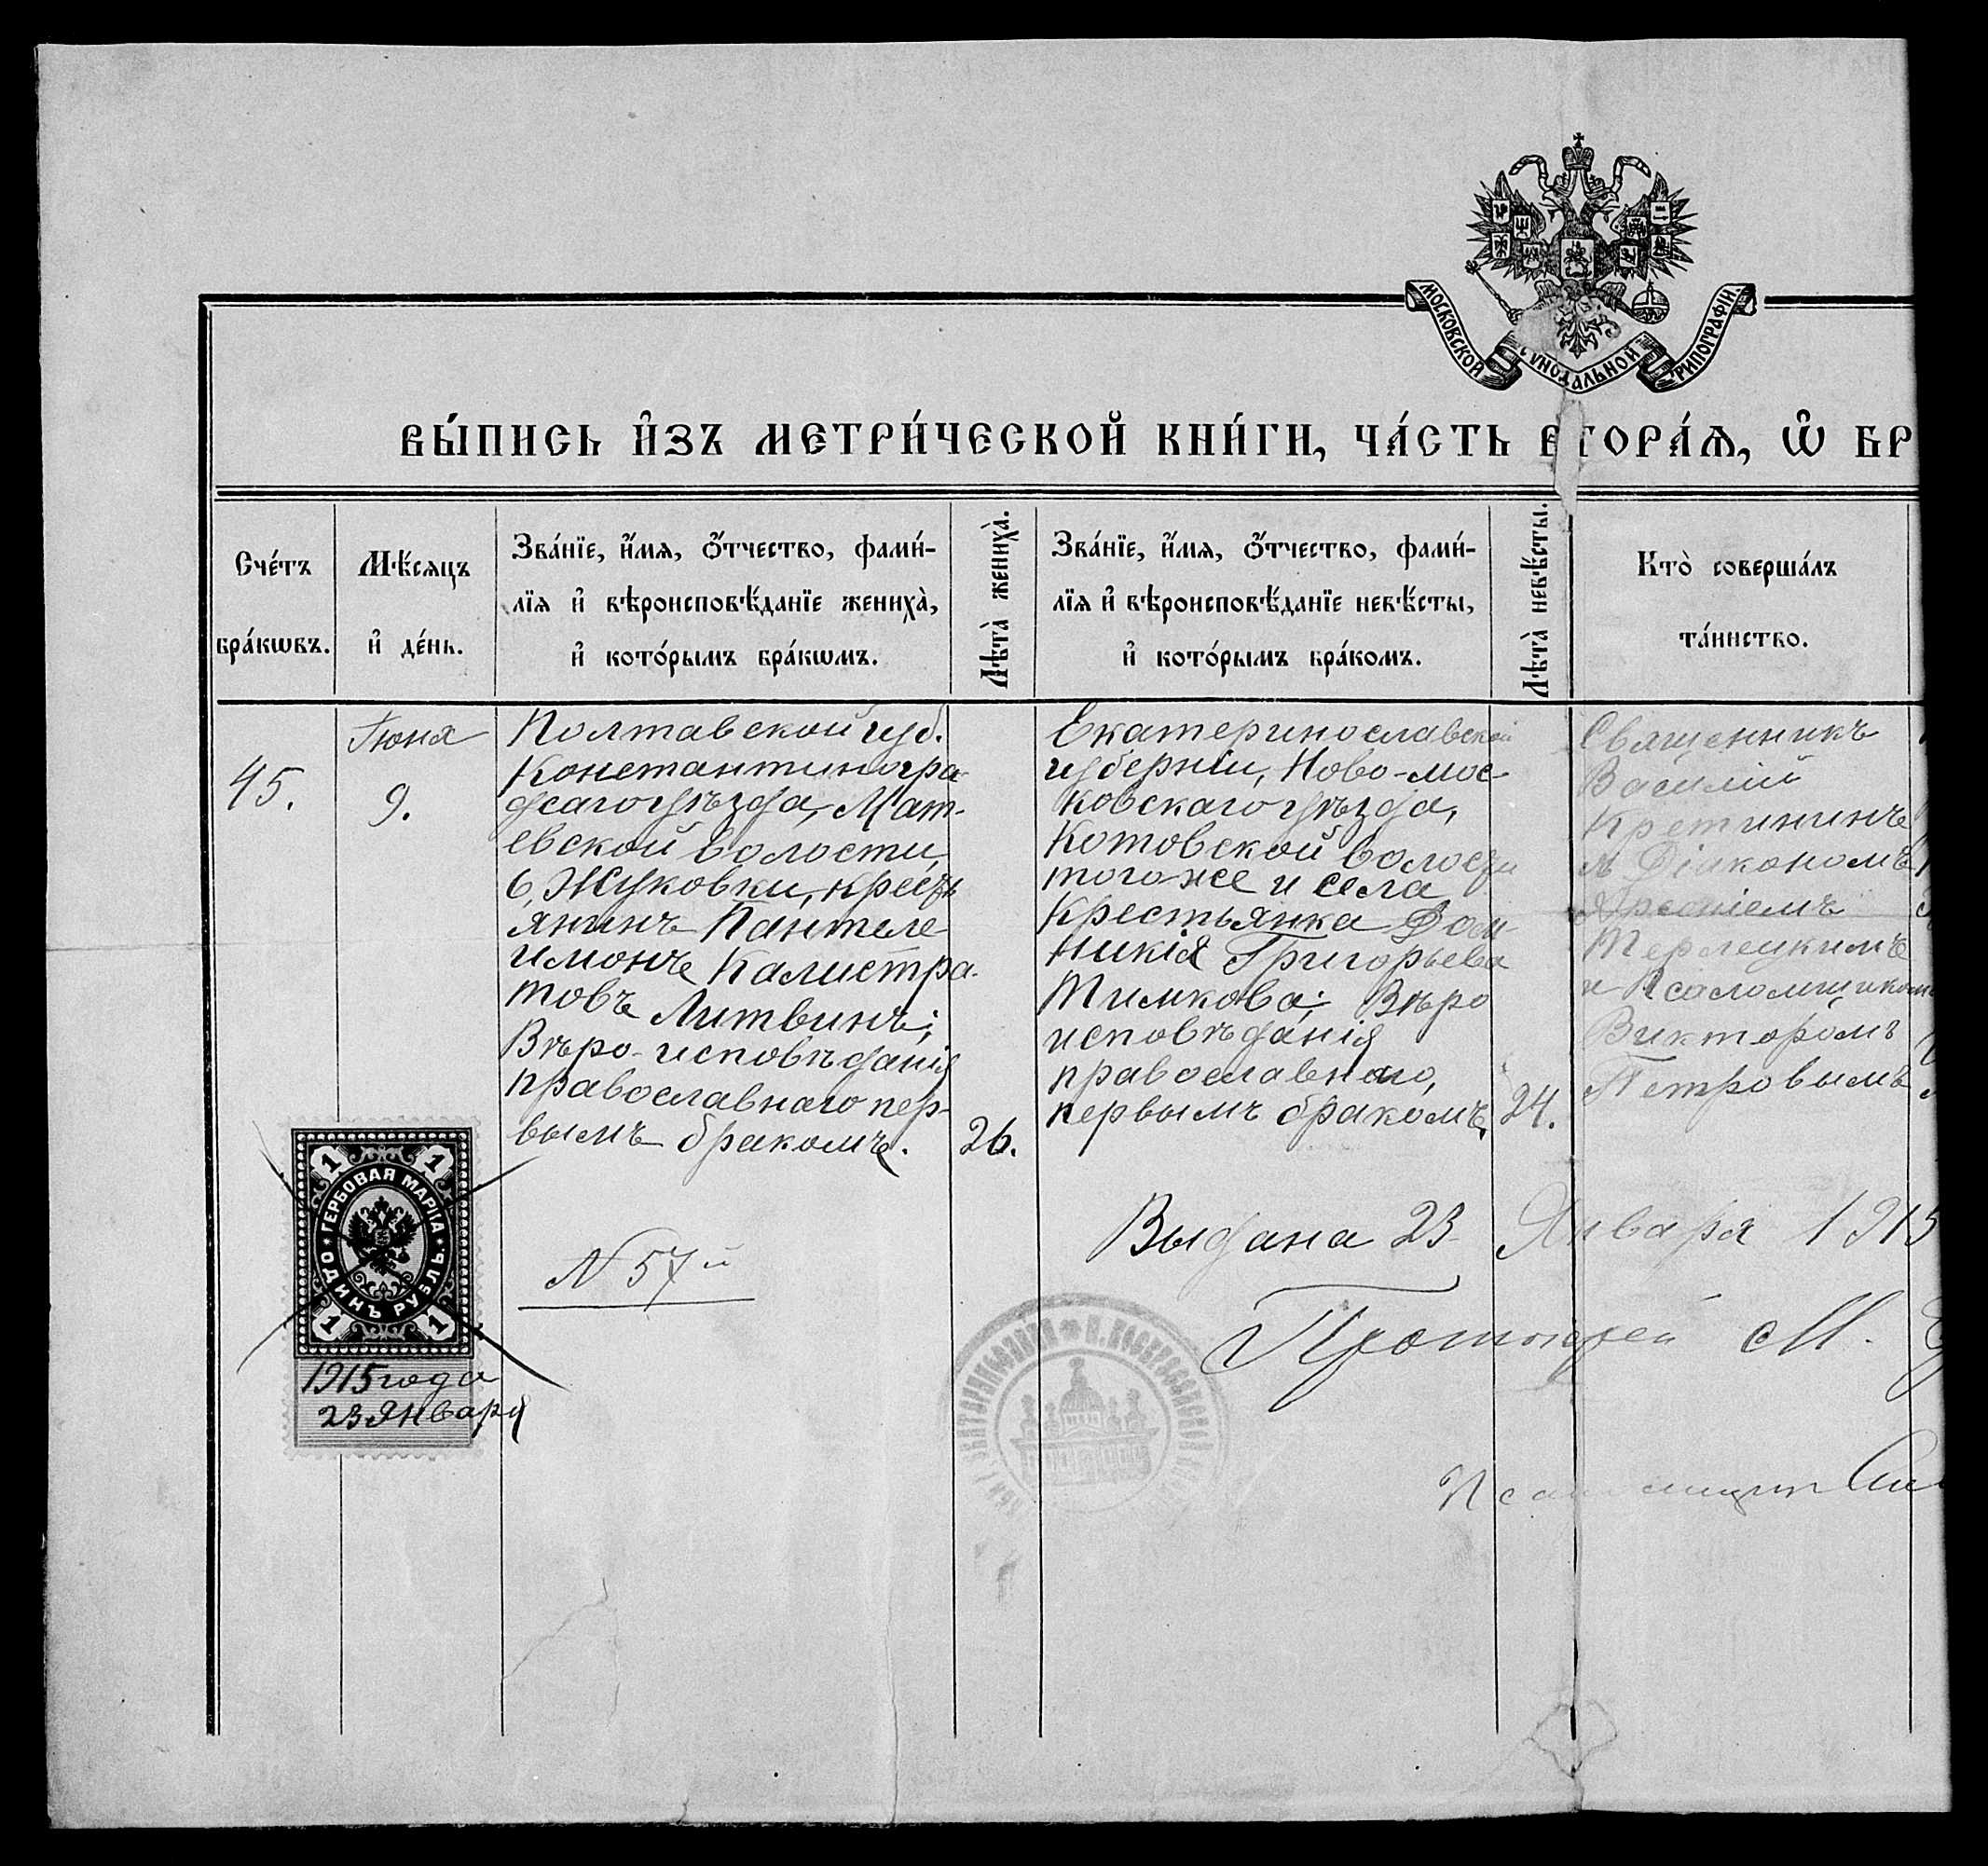 МОСКОВСКОЙ СѴНОДАЛЬНОЙ ТИПОГРАФІИ
ВЫ́ПИСЬ И҆́ЗЪ МЕТРИ́ЧЕСКОЙ КНИ́ГИ, ЧА́СТЬ ВТОРА́Ѧ, Ѡ҆ БР
Сче́тъ
бра́кѡвъ.
Мѣ́сяцъ
и҆ де́нь.
Зва́нїе, и҆́мя, ѻ҆́тчество, фами́-
лїя и҆ вѣроисповѣ́данїе жениха̀,
и҆ кото́рымъ бра́кѡмъ.
Лѣта̀ жениха̀.
Зва́нїе, и҆́мя, ѻ҆́тчество, фами́-
лїя и҆ вѣроисповѣ́данїе невѣ́сты,
и҆ кото́рымъ бра́комъ.
Лѣта̀ невѣ́сты.
Кто̀ соверша́лъ
та́инство.
45.
Іюня
9.
Полтавской губ.
Константиногра
дсаго уѣзда, Мат-
евской волости,
с, Жуковки, крест
янинъ Пантеле
имонъ Калистра-
товъ Литвинъ;
Вѣро-исповѣданія
православнаго пер-
вымъ бракомъ.
26.
Екатеринославской
губерніи, Ново-мос-
ковскаго уѣзда,
Котовской волости
того же и села
Крестьянка Дом-
никія Григорьева
Тимкова; Вѣро
исповѣданія
православнаго,
первымъ бракомъ,
24.
Священникъ
Василій
Кретининъ
съ Діакономъ
Терлецкимъ
и Псаломщикомъ
Викторомъ
Петровымъ
ГЕРБОВАЯ МАРКА
ОДИНЪ РУБЛЬ
1 1
1 1
1915 года
23 Января
N 57й
Выдана 23 Января 1915
Протоіерей М.
Псаломщикъ